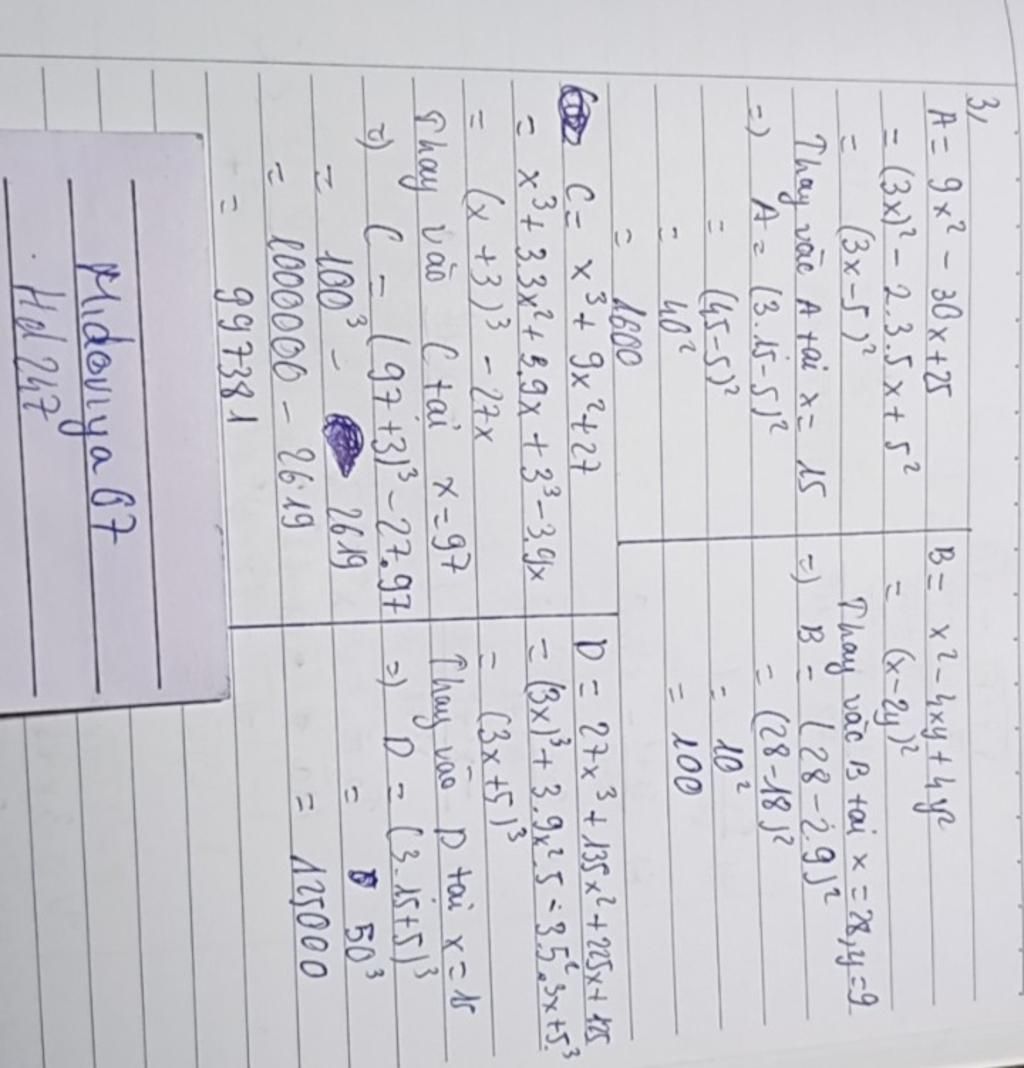 3,
A = 9x² - 30x + 25
= (3x)² - 2.3.5x + 5²
= (3x - 5)²
Thay vào A tại x = 15
=) A = (3.15 - 5)²
= (45 - 5)²
= 40²
= 1600
B = x² - 4xy + 4y²
= (x - 2y)²
Thay vào B tại x = 28, y = 9
=) B = (28 - 2.9)²
= (28 - 18)²
= 10²
= 100
C = x³ + 9x² + 27
= x³ + 3.3x² + 3.9x + 3³ - 3.9x
= (x + 3)³ - 27x
Thay vào C tại x = 97
=) C = (97 + 3)³ - 27.97
= 100³ - 2619
= 1000000 - 2619
= 997381
D = 27x³ + 135x² + 225x + 125
= (3x)³ + 3.9x².5 + 3.5².3x + 5³
= (3x + 5)³
Thay vào D tại x = 15
=) D = (3.15 + 5)³
= 50³
= 125000
Midoriya67
Hd247